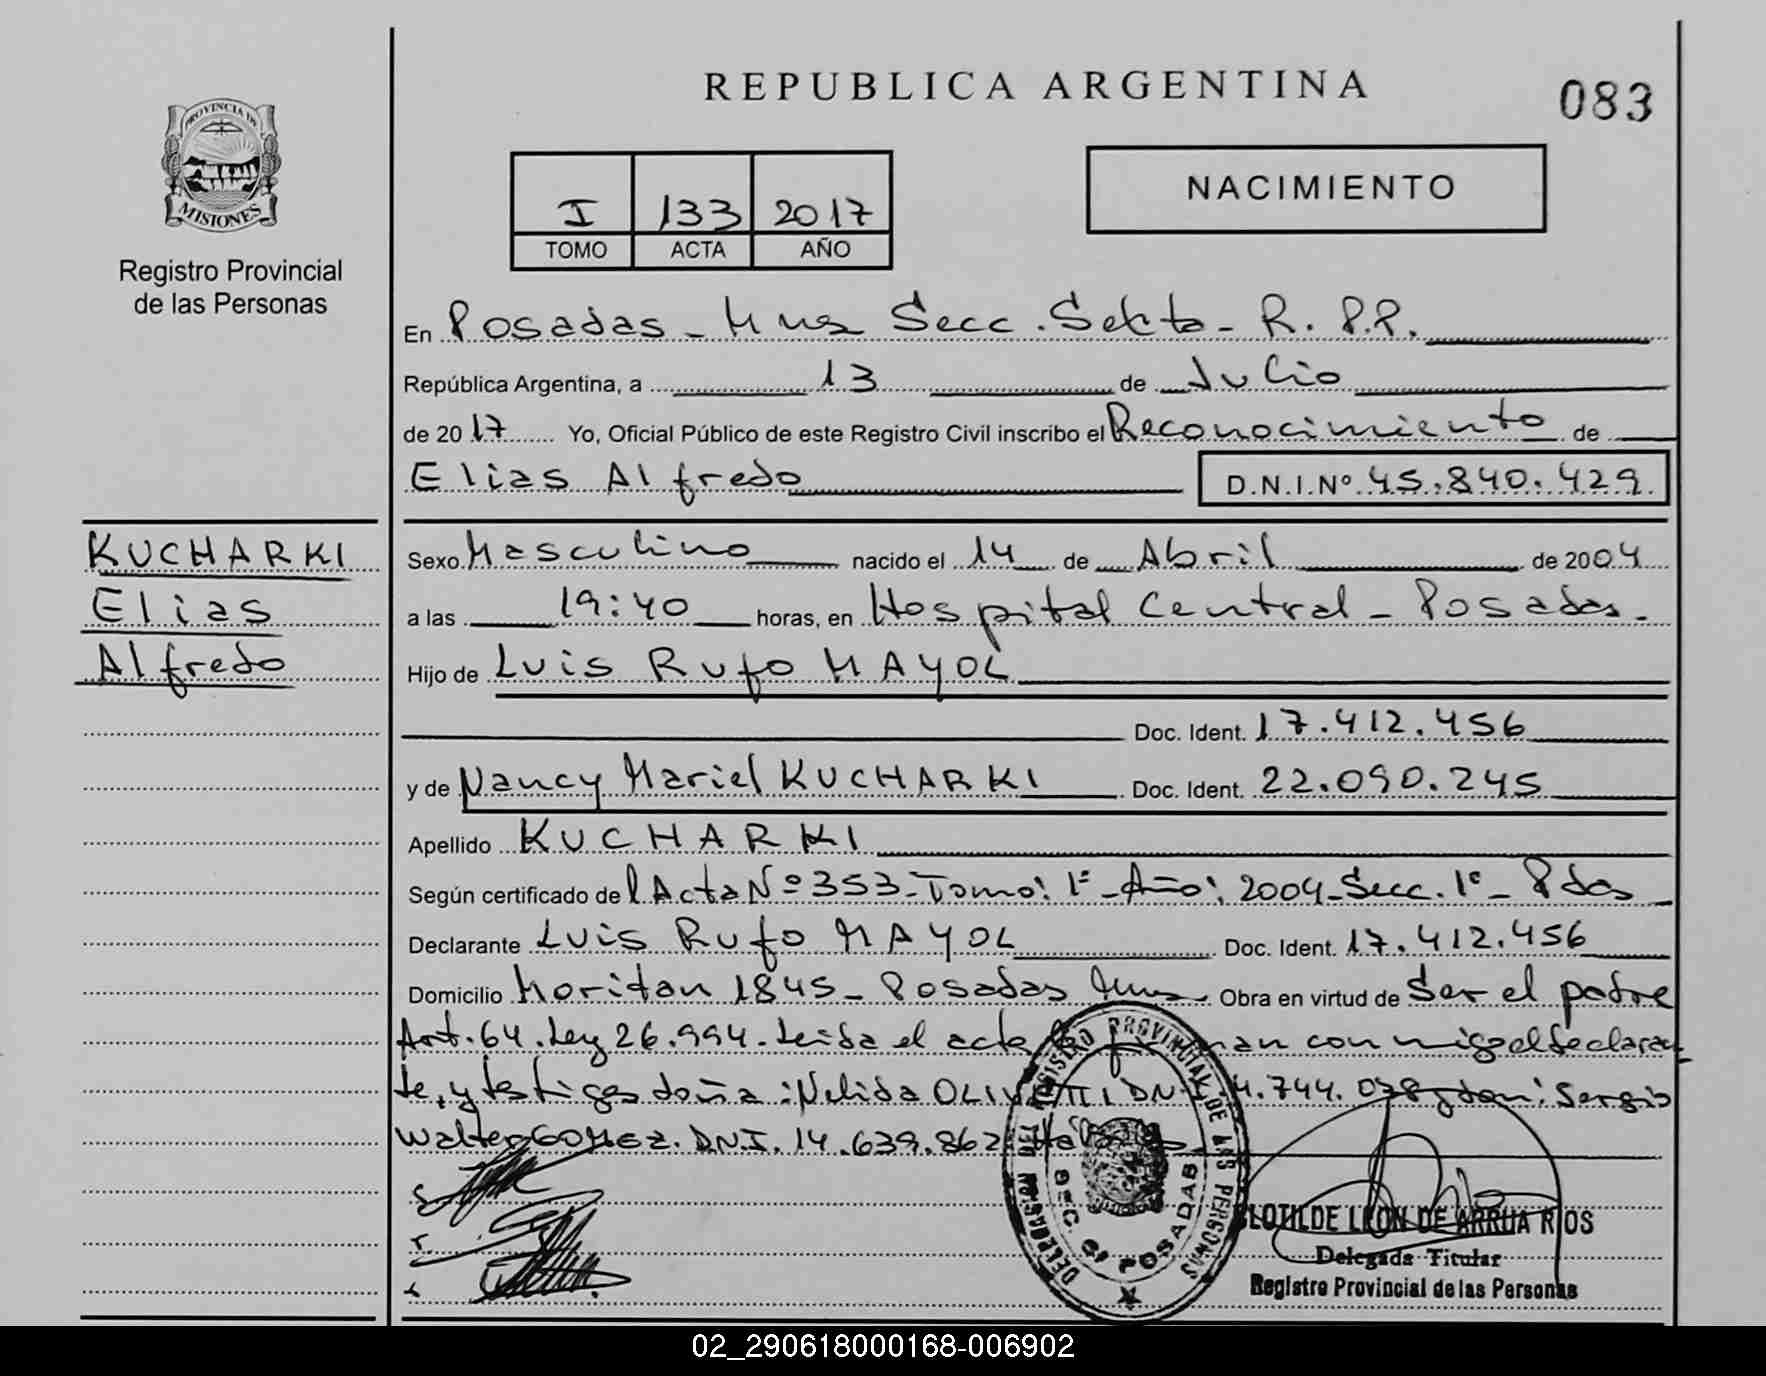 REPUBLICA ARGENTINA
083
PROVINCIA DE
MISIONES
Registro Provincial
de las Personas
I 133 2017
TOMO ACTA AÑO
NACIMIENTO
En Posadas - Mnes Secc. Sexta - R. P.P.
República Argentina, a 13 de Julio
de 2017 Yo, Oficial Público de este Registro Civil inscribo el Reconocimiento de
Elias Alfredo D.N.I.Nº 45.840.429
KUCHARKI
Elias
Alfredo
Sexo Masculino nacido el 14 de Abril de 2004
a las 19:40 horas, en Hospital Central - Posadas -
Hijo de Luis Rufo MAYOL
Doc. Ident. 17.412.456
y de Nancy Mariel KUCHARKI Doc. Ident. 22.090.245
Apellido KUCHARKI
Según certificado del Acta Nº 353 - Tomo: 1º - Año: 2004 - Secc. 1º - Pdas
Declarante Luis Rufo MAYOL Doc. Ident. 17.412.456
Domicilio Moritan 1845 - Posadas Mnes Obra en virtud de Ser el padre
Art. 64. Ley 26.994. Leida el acta la firman con migo el declaran
te, y testigos doña: Nelida DNI 4.744.078 y don: Sergio
Walter GOMEZ. D.N.I. 14.639.862
DELEGACION DEL REGISTRO PROVINCIAL DE LAS PERSONAS
SEC. 6ª POSADAS
CLOTILDE LEON DE ARRUA RIOS
Delegada Titular
Registro Provincial de las Personas
02_290618000168-006902